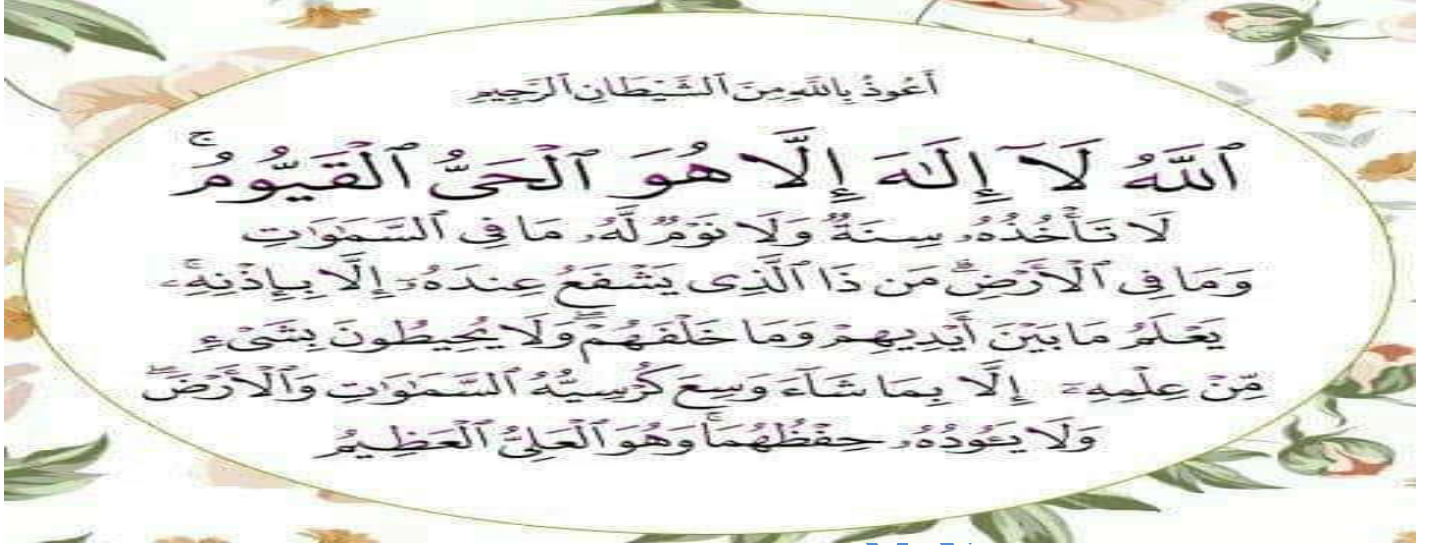 أَعُوذُ بِاللَّهِ مِنَ ٱلشَّيْطَانِ ٱلرَّجِيمِ
ٱللَّهُ لَآ إِلَـٰهَ إِلَّا هُوَ ٱلْحَىُّ ٱلْقَيُّومُ ۚ
لَا تَأْخُذُهُۥ سِنَةٌ وَلَا نَوْمٌ لَّهُۥ مَا فِى ٱلسَّمَـٰوَٰتِ
وَمَا فِى ٱلْأَرْضِ ۗ مَن ذَا ٱلَّذِى يَشْفَعُ عِندَهُۥٓ إِلَّا بِإِذْنِهِۦ ۚ
يَعْلَمُ مَا بَيْنَ أَيْدِيهِمْ وَمَا خَلْفَهُمْ ۖ وَلَا يُحِيطُونَ بِشَىْءٍ
مِّنْ عِلْمِهِۦٓ إِلَّا بِمَا شَآءَ وَسِعَ كُرْسِيُّهُ ٱلسَّمَـٰوَٰتِ وَٱلْأَرْضَ ۖ
وَلَا يَـُٔودُهُۥ حِفْظُهُمَا ۚ وَهُوَ ٱلْعَلِىُّ ٱلْعَظِيمُ